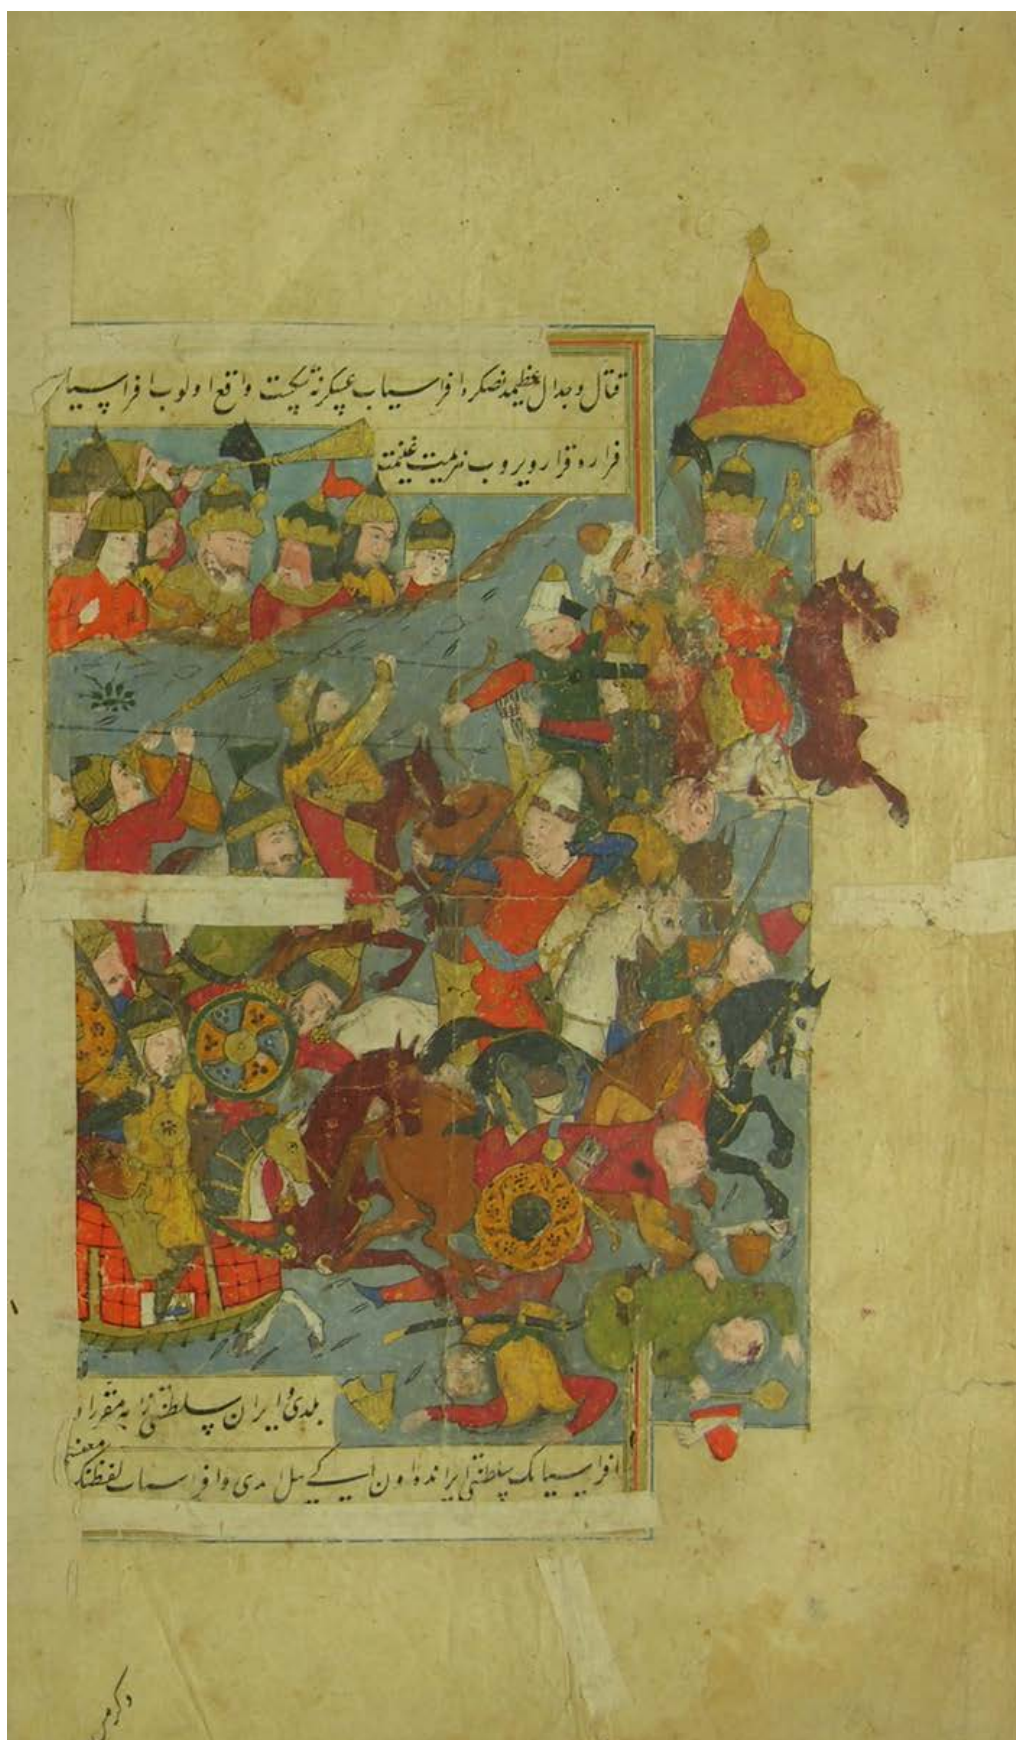 قتال وجدال عظیمدنصکره افراسیاب عسکرنه شکست واقع اولوب افراسیاب
فراره قرار ویروب هزیمت غنیمت
بلدی و ایران سلطنتی زابه مقرر
افراسیابک سلطنتی ایرانده اون ایکی ییل ایدی و افراسیاب لفظنک
معنیسی
دکرمن